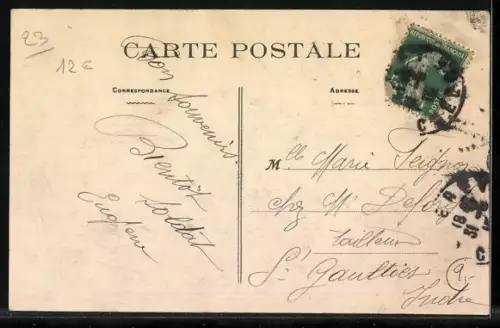 23
12 e
CARTE POSTALE
CORRESPONDANCE
ADRESSE
Bon souvenir
Bientôt soldat
Eugène
Mlle Marie
chez Mr
tailleur
St Gaultier
Indre